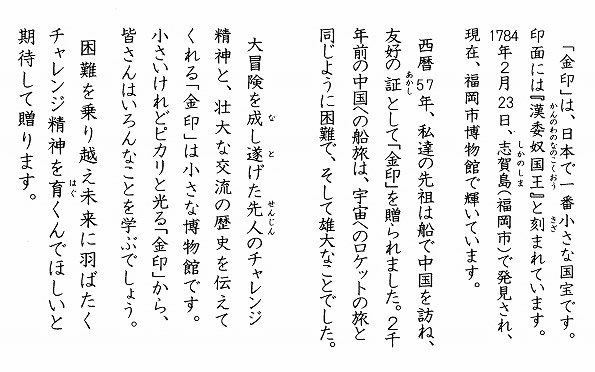 「金印」は、日本で一番小さな国宝です。
印面には『漢委奴国王』と刻まれています。
かんのわのなのこくおう
きざ
1784年2月23日、志賀島(福岡市)で発見され、
しかのしま
現在、福岡市博物館で輝いています。
西暦57年、私達の先祖は船で中国を訪ね、
友好の証として「金印」を贈られました。2千
あかし
年前の中国への船旅は、宇宙へのロケットの旅と
同じように困難で、そして雄大なことでした。
大冒険を成し遂げた先人のチャレンジ
な
と
せんじん
精神と、壮大な交流の歴史を伝えて
くれる「金印」は小さな博物館です。
小さいけれどピカリと光る「金印」から、
皆さんはいろんなことを学ぶでしょう。
困難を乗り越え未来に羽ばたく
チャレンジ精神を育くんでほしいと
はぐ
期待して贈ります。